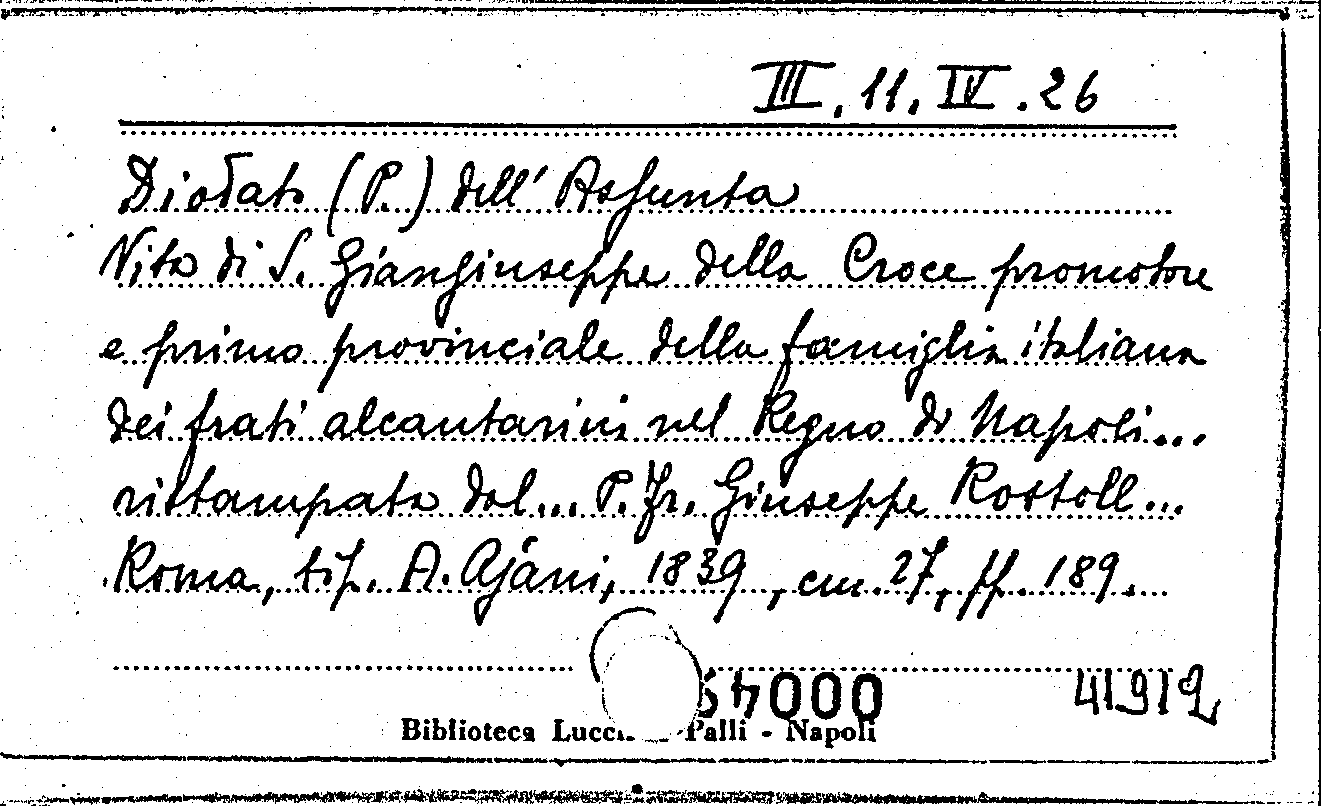 III. 11. IV. 26
Diodato (P.) dell' Assunta
Vita di S. Giangiuseppe della Croce promotore
e primo provinciale della famiglia italiana
dei frati alcantarini nel Regno di Napoli...
ristampata dal... P. Fr. Giuseppe Rostoll...
Roma, tip. A. Ajani, 1839, cm. 27, pp. 189.
41912
Biblioteca Palli - Napoli